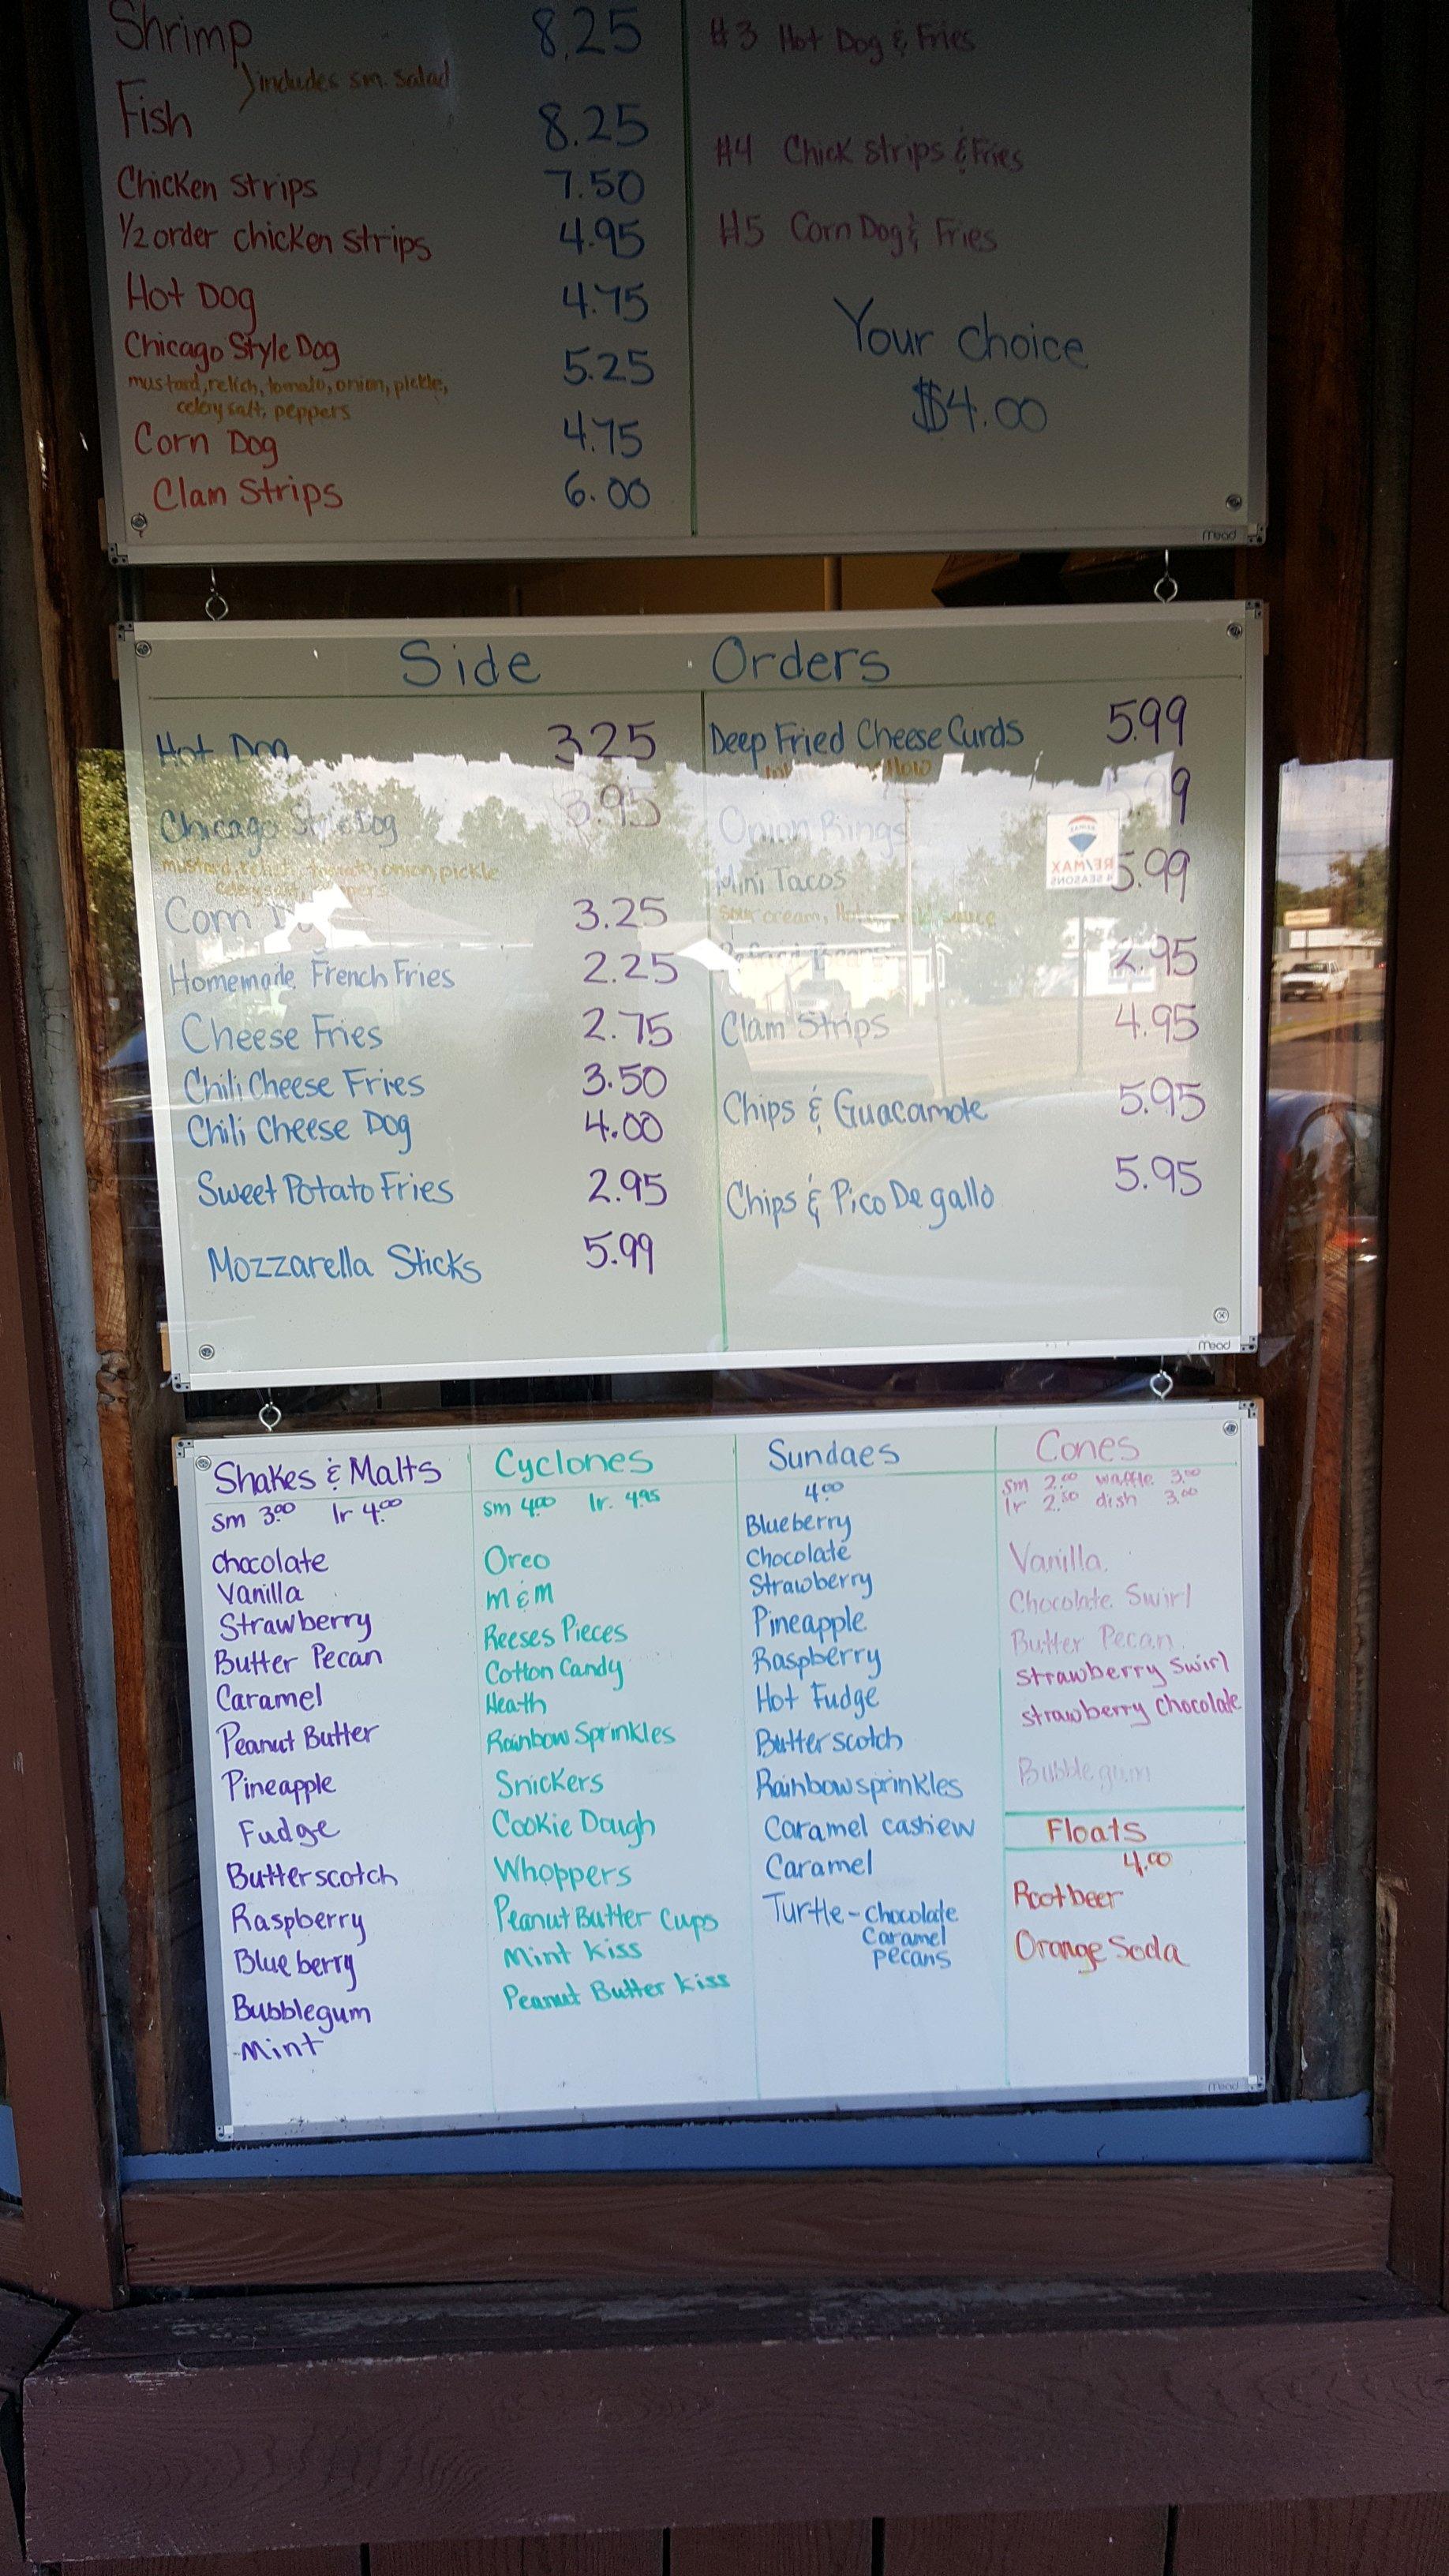 Shrimp 8.25
includes sm. salad
Fish 8.25
Chicken Strips 7.50
1/2 order chicken strips 4.95
Hot Dog 4.75
Chicago Style Dog 5.25
mustard, relich, tomato, onion, pickle,
celery salt, peppers
Corn Dog 4.75
Clam Strips 6.00
#3 Hot Dog & Fries
#4 Chick strips & Fries
#5 Corn Dog & Fries
Your choice
$4.00
mead
Side Orders
Hot Dog 3.25
Chicago Style Dog 3.95
mustard, relish, tomato, onion, pickle
celery salt, peppers
Corn 3.25
Homemade French Fries 2.25
Cheese Fries 2.75
Chili Cheese Fries 3.50
Chili Cheese Dog 4.00
Sweet Potato Fries 2.95
Mozzarella Sticks 5.99
Deep Fried Cheese Curds 5.99
Onion Rings
Mini Tacos 5.99
sour cream, sauce
2.95
Clam Strips 4.95
Chips & Guacamole 5.95
Chips & Pico De gallo 5.95
RE/MAX
4 SEASONS
mead
Shakes & Malts
sm 3.00 lr 4.00
chocolate
Vanilla
Strawberry
Butter Pecan
Caramel
Peanut Butter
Pineapple
Fudge
Butterscotch
Raspberry
Blueberry
Bubblegum
-Mint
Cyclones
sm 4.00 lr. 4.95
Oreo
M & M
Reeses Pieces
Cotton Candy
Heath
Rainbow Sprinkles
Snickers
Cookie Dough
Whoppers
Peanut Butter Cups
Mint Kiss
Peanut Butter Kiss
Sundaes
4.00
Blueberry
Chocolate
Strawberry
Pineapple
Raspberry
Hot Fudge
Butterscotch
Rainbow sprinkles
Caramel cashew
Caramel
Turtle - chocolate
Caramel
pecans
Cones
sm 2.00 waffle 3.50
lr 2.50 dish 3.00
Vanilla
Chocolate Swirl
Butter Pecan
Strawberry Swirl
strawberry Chocolate
Bubblegum
Floats
4.00
Rootbeer
Orange Soda
mead